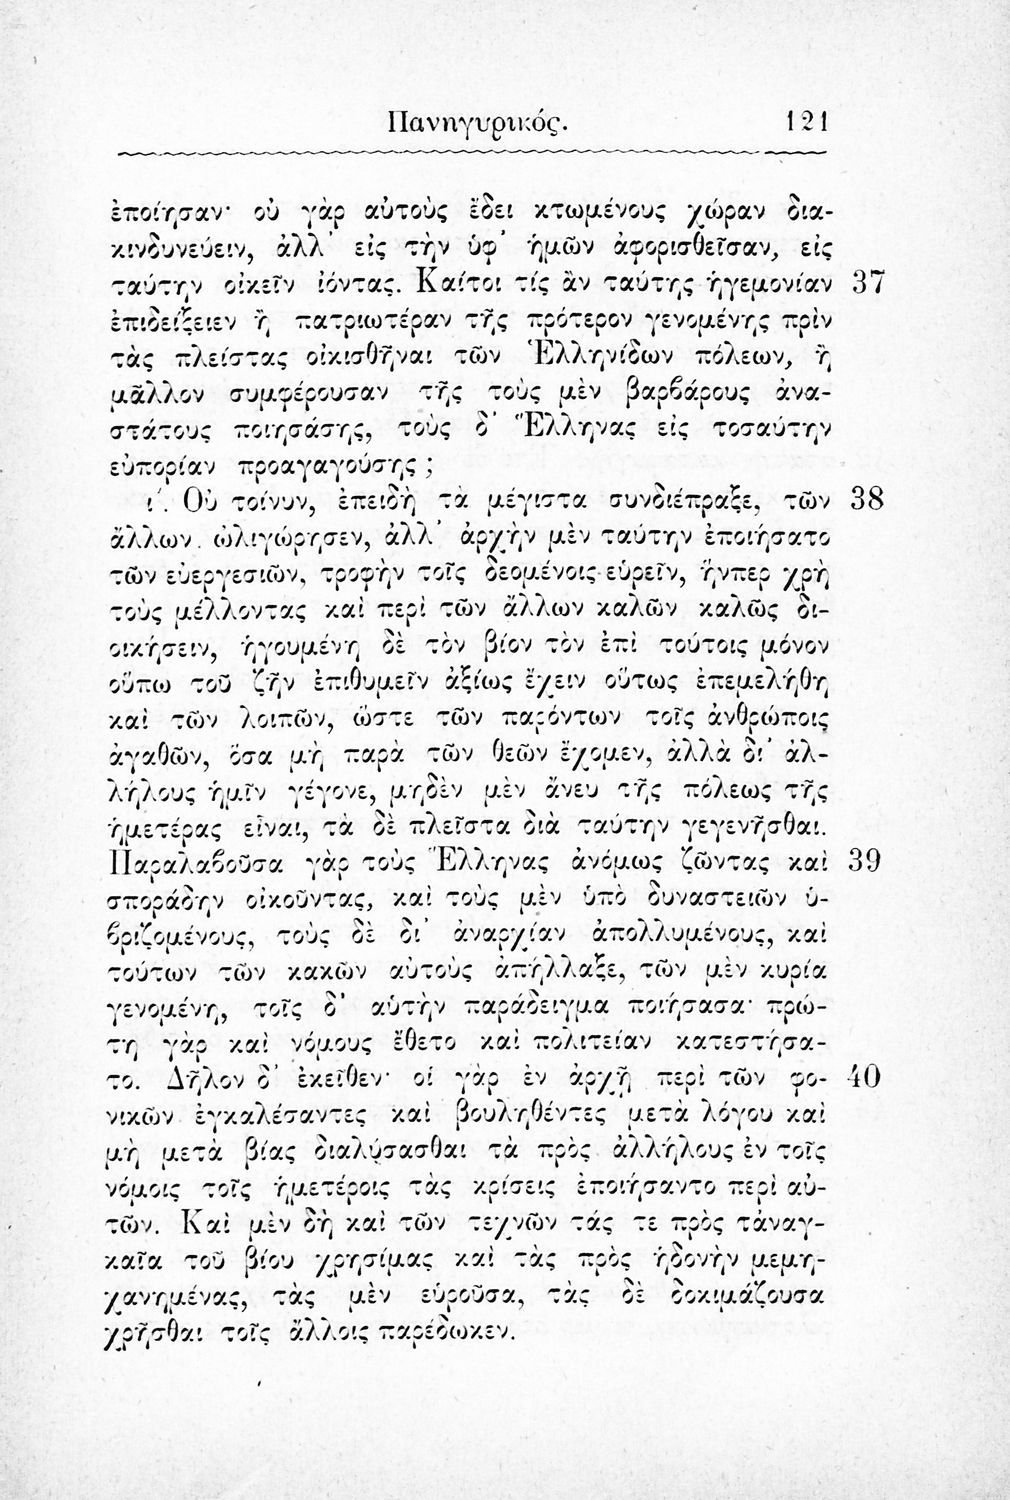 Πανηγυρικός. 121
ἐποίησαν· οὐ γὰρ αὐτοὺς ἔδει κτωμένους χώραν δια-
κινδυνεύειν, ἀλλ᾽ εἰς τὴν ὑφ᾽ ἡμῶν ἀφορισθεῖσαν, εἰς
ταύτην οἰκεῖν ἰόντας. Καίτοι τίς ἂν ταύτης ἡγεμονίαν 37
ἐπιδείξειεν ἢ πατριωτέραν τῆς πρότερον γενομένης πρὶν
τὰς πλείστας οἰκισθῆναι τῶν Ἑλληνίδων πόλεων, ἢ
μᾶλλον συμφέρουσαν τῆς τοὺς μὲν βαρϐάρους ἀνα-
στάτους ποιησάσης, τοὺς δ᾽ Ἕλληνας εἰς τοσαύτην
εὐπορίαν προαγαγούσης ;
ι΄. Οὐ τοίνυν, ἐπειδὴ τὰ μέγιστα συνδιέπραξε, τῶν 38
ἄλλων ὠλιγώρησεν, ἀλλ᾽ ἀρχὴν μὲν ταύτην ἐποιήσατο
τῶν εὐεργεσιῶν, τροφὴν τοῖς δεομένοις εὑρεῖν, ἥνπερ χρὴ
τοὺς μέλλοντας καὶ περὶ τῶν ἄλλων καλῶν καλῶς δι-
οικήσειν, ἡγουμένη δὲ τὸν βίον τὸν ἐπὶ τούτοις μόνον
οὔπω τοῦ ζῆν ἐπιθυμεῖν ἀξίως ἔχειν οὕτως ἐπεμελήθη
καὶ τῶν λοιπῶν, ὥστε τῶν παρόντων τοῖς ἀνθρώποις
ἀγαθῶν, ὅσα μὴ παρὰ τῶν θεῶν ἔχομεν, ἀλλὰ δι᾽ ἀλ-
λήλους ἡμῖν γέγονε, μηδὲν μὲν ἄνευ τῆς πόλεως τῆς
ἡμετέρας εἶναι, τὰ δὲ πλεῖστα διὰ ταύτην γεγενῆσθαι.
Παραλαϐοῦσα γὰρ τοὺς Ἕλληνας ἀνόμως ζῶντας καὶ 39
σποράδην οἰκοῦντας, καὶ τοὺς μὲν ὑπὸ δυναστειῶν ὑ-
ϐριζομένους, τοὺς δὲ δι᾽ ἀναρχίαν ἀπολλυμένους, καὶ
τούτων τῶν κακῶν αὐτοὺς ἀπήλλαξε, τῶν μὲν κυρία
γενομένη, τοῖς δ᾽ αὑτὴν παράδειγμα ποιήσασα· πρώ-
τη γὰρ καὶ νόμους ἔθετο καὶ πολιτείαν κατεστήσα-
το. Δῆλον δ᾽ ἐκεῖθεν· οἱ γὰρ ἐν ἀρχῇ περὶ τῶν φο- 40
νικῶν ἐγκαλέσαντες καὶ βουληθέντες μετὰ λόγου καὶ
μὴ μετὰ βίας διαλύσασθαι τὰ πρὸς ἀλλήλους ἐν τοῖς
νόμοις τοῖς ἡμετέροις τὰς κρίσεις ἐποιήσαντο περὶ αὐ-
τῶν. Καὶ μὲν δὴ καὶ τῶν τεχνῶν τάς τε πρὸς τἀναγ-
καῖα τοῦ βίου χρησίμας καὶ τὰς πρὸς ἡδονὴν μεμη-
χανημένας, τὰς μὲν εὑροῦσα, τὰς δὲ δοκιμάζουσα
χρῆσθαι τοῖς ἄλλοις παρέδωκεν.